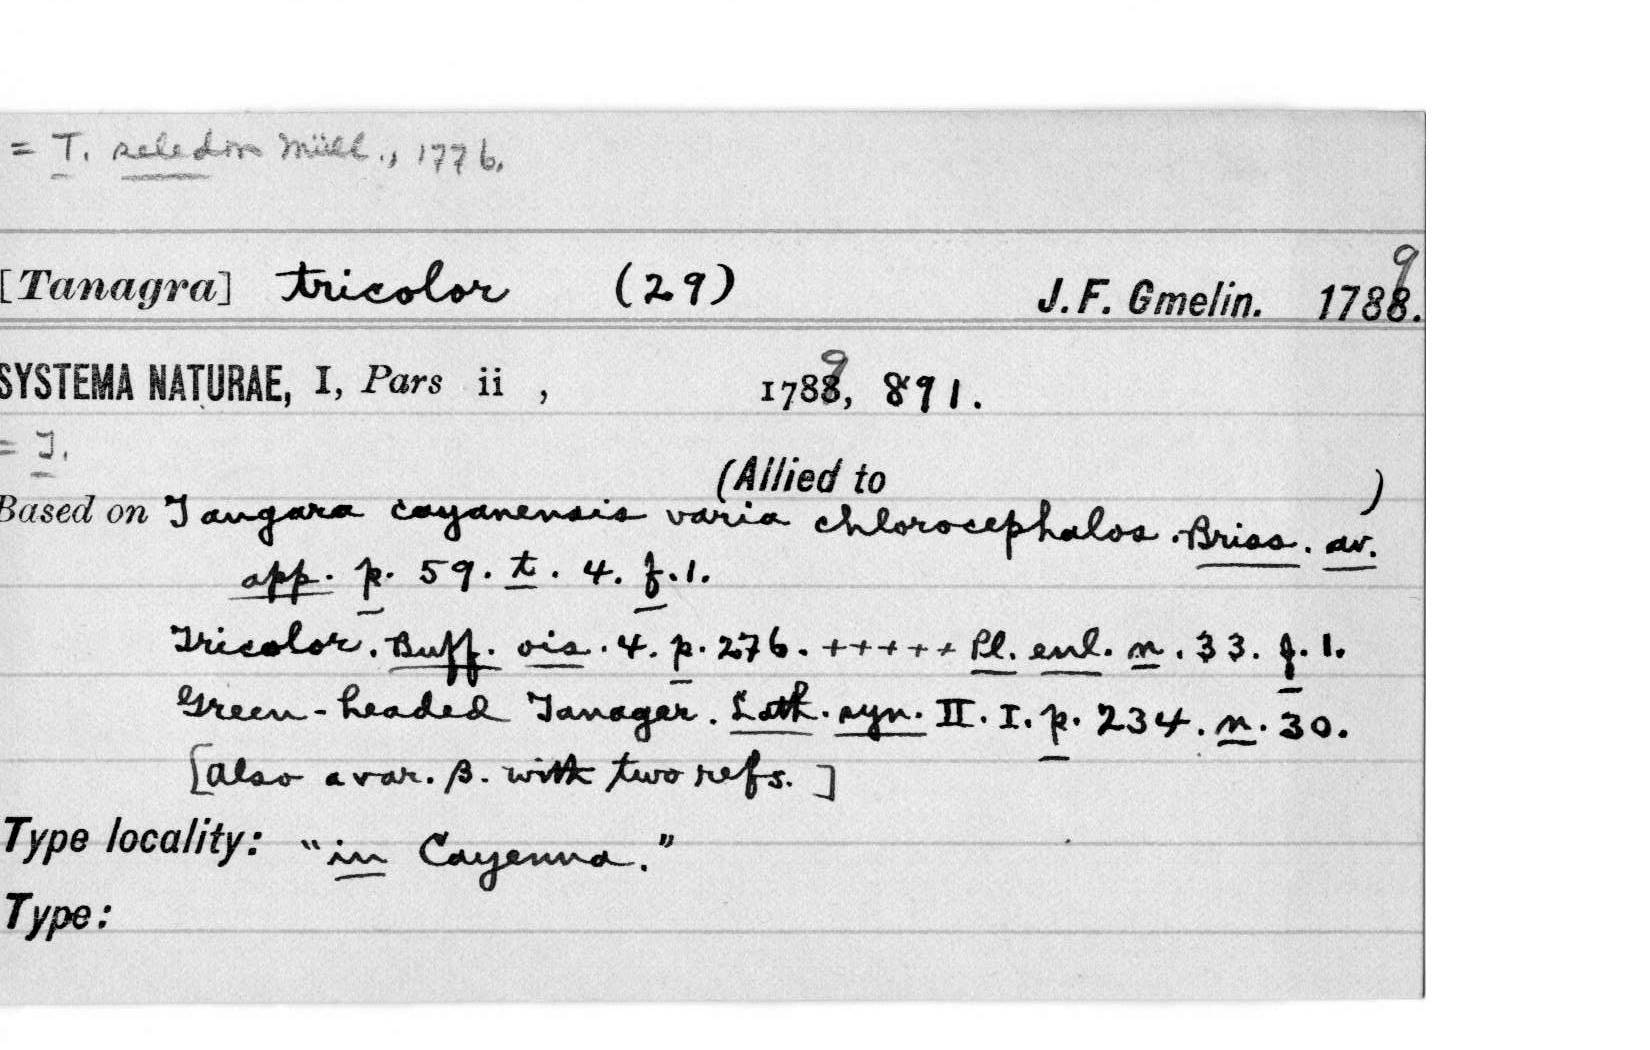 = T. seledon Müll., 1776.
[Tanagra] tricolor (29) J. F. Gmelin. 1788. 9
SYSTEMA NATURAE, I, Pars ii , 1788, 9 891.
= T.
(Allied to )
Based on Tangara cayanensis varia chlorocephalos. Briss. av.
app. p. 59. t. 4. f. 1.
Tricolor. Buff. ois. 4. p. 276. +++++ Pl. enl. n. 33. f. 1.
Green-headed Tanager. Lath. syn. II. I. p. 234. n. 30.
[also a var. β. with two refs. ]
Type locality: "in Cayenna."
Type: